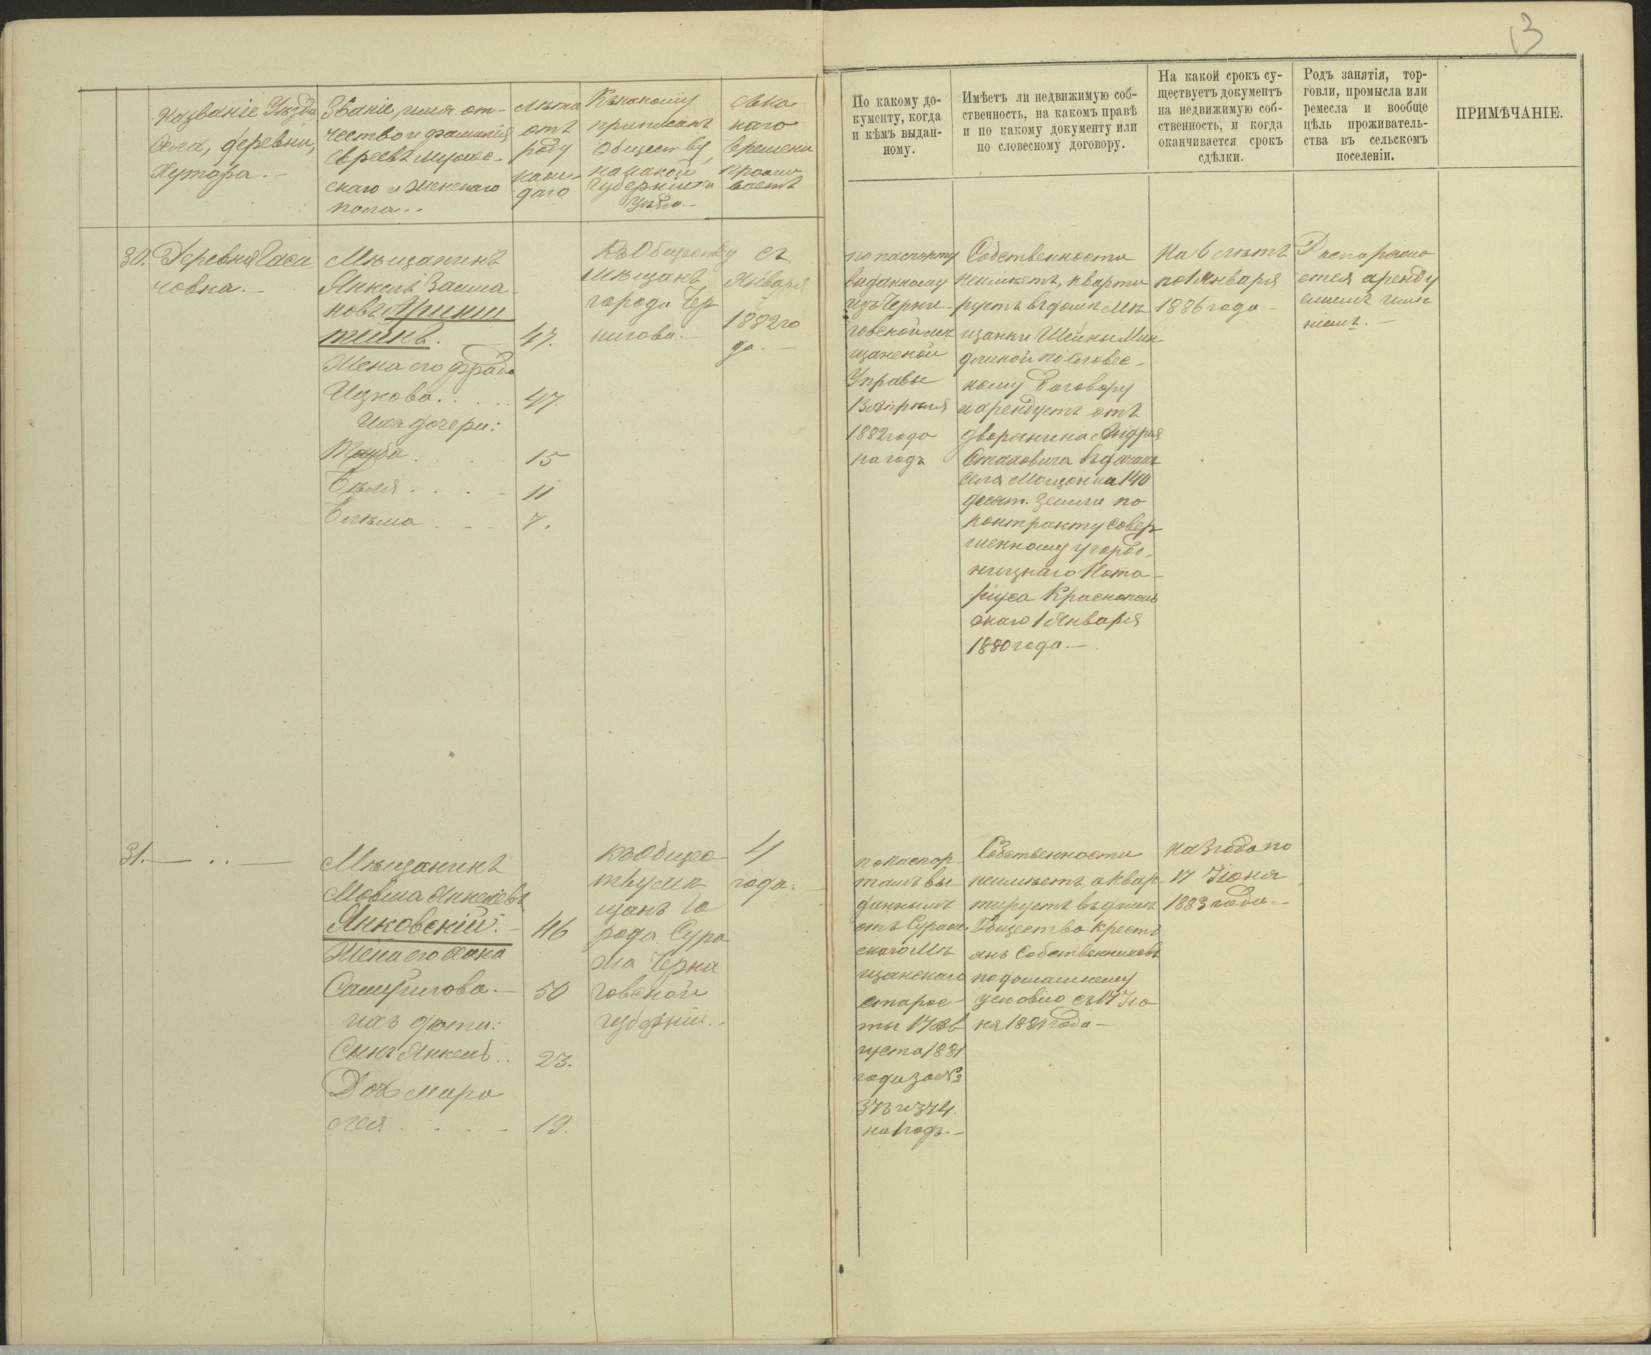 13
Названіе Уѣзда
села, деревни,
Хутора.–
Званіе, имя от-
чество и фамилія
евреевъ мужес-
скаго и женскаго
пола..
Лѣта
отъ
роду
кажд-
даго
Къ какому
приписанъ
Обществу,
на какой
Губерніи и
Уѣзда–
Съ ка
каго
времени
прожи
ваетъ
По какому до-
кументу, когда
и кѣмъ выдан-
ному.
Имѣетъ ли недвижимую соб-
ственность, на какомъ правѣ
и по какому документу или
по словесному договору.
На какой срокъ су-
ществуетъ документъ
на недвижимую соб-
ственность, и когда
оканчивается срокъ
сдѣлки.
Родъ занятія, тор-
говли, промысла или
ремесла и вообще
цѣль проживатель-
ства въ сельскомъ
поселеніи.
ПРИМѢЧАНІЕ.
30. Деревня
новка.–
Мѣщанинъ
Янкель
новъ
47.
Жена его
Ицкова. . . . . 47.
Ихъ дочери:
Тауба . . . . 15
Бейля . . . . 11
. . . 7.
Къ Обществу
Мѣщанъ
города Чер
нигова.–
съ
Января
1882 го
да.–
по паспорту
выданному
изъ Черни-
говской мѣ
щанской
Управы
13 Апрѣля
1882 года
на годъ
Собственности
неимѣетъ, кварти
руетъ въ домѣ Мѣ
щанки Шейны Мин-
диной по словес-
ному договору
и арендуетъ отъ
дворянина Андрея
въ дачахъ
села 140
десят. земли по
контракту совер
шенному у Городо-
ницкаго Нота-
ріуса Краснополь
скаго 1 Января
1880 года.–
На 6 лѣтъ
по 1 Января
1886 года–
Распоряжа
ется аренду
емымъ имѣ
ніемъ.–
31. – .. –
Мѣщанинъ
Мовша Янкелевъ
Янковскій.– 46
Жена его Хана
50
ихъ дѣти:
Сынъ Янкель.. 23.
Дочь Мара
сея . . . . 19.
Къ Общес
тву Мѣ
щанъ Го
рода Сура
жа Черни
говской
губерніи.–
4
года.
по паспор
тамъ вы
даннымъ
отъ Сураж
скаго Мѣ
щанскаго
старос-
ты 17 Ав
густа 1881
года за №
373 и 374.
на годъ.–
Собственности
неимѣетъ, а квар
тируетъ въ домѣ
Общества крестъ
янъ Собственниковъ
по домашнему
условію съ 17 Ію
ня 1881 года–
На 3 года по
17 Іюня
1883 года.–